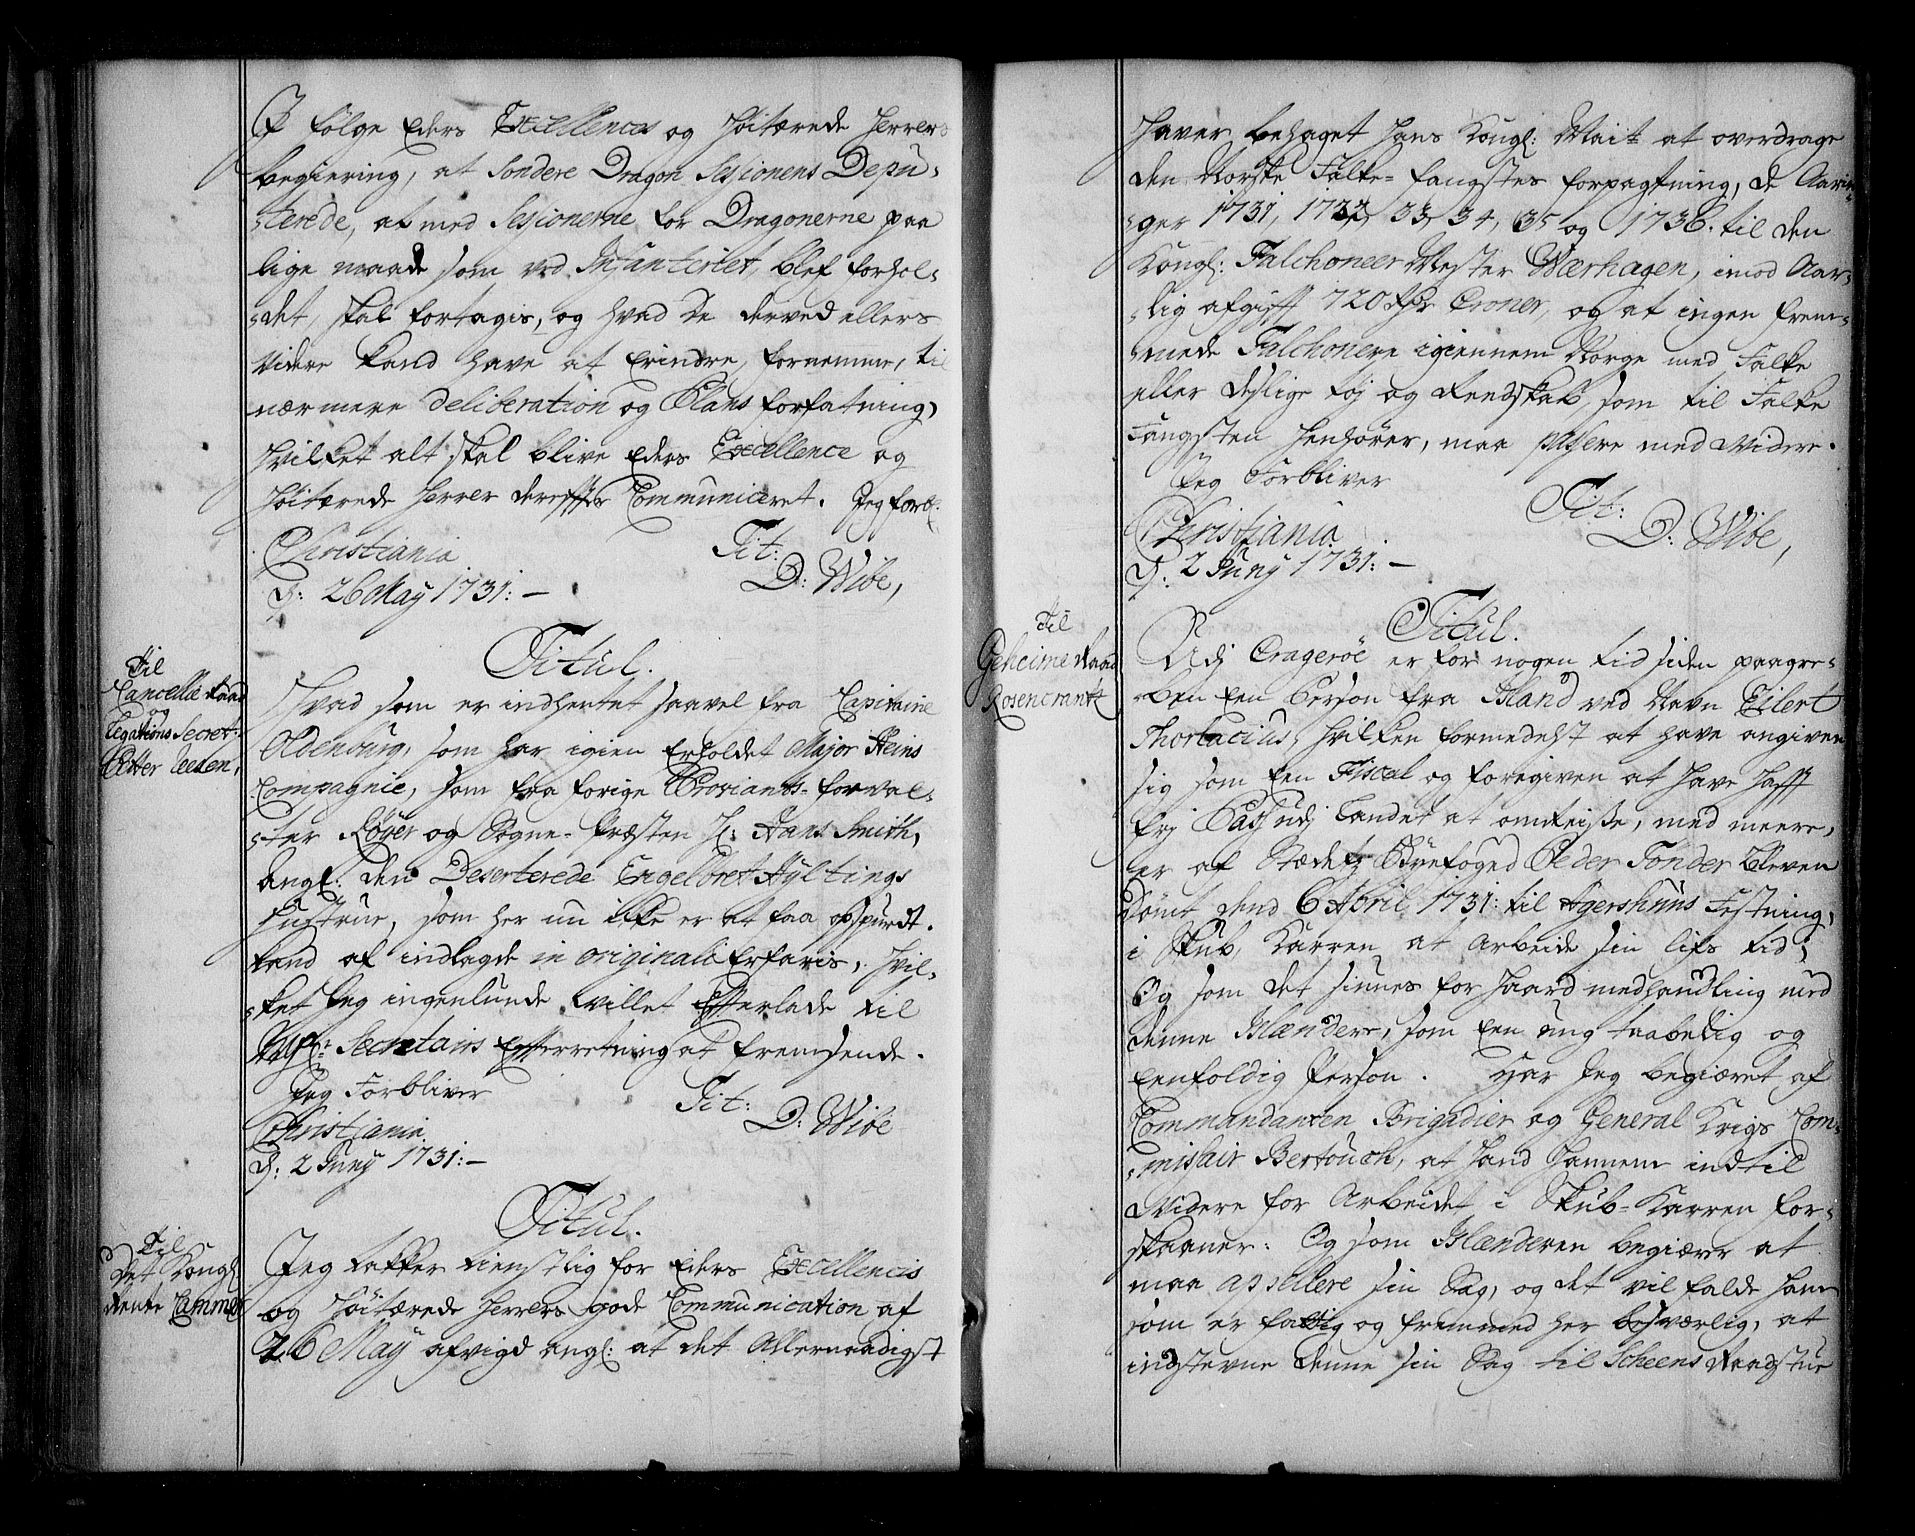 I følge Eders Excellences og Høitærede Herrers
begiering, at Søndre Dragon Sessionens Depu-
-terede, at med Sessionerne for Dragonerne paa
lige maade som ved Infanteriet, blef forhol-
-det, skal fortagis, og hvad De derved ellers
videre kand have at erindre, fornemme, til
nærmere deliberation og Plans forfatning,
hvilket alt skal blive Eders Excellence og
Høitærede Herrer derefter Communiceret. Jeg forbl:
Christiania Tit:
d: 26 May 1731:— D: Wibe,
Til
Cancellie Raad
og
Legations Secret:
Titul.
Hvad som er indhentet saavel fra Capitaine
Oldenburg, som har igien erholdet Major Steins
Compagnie, som fra forige Proviants-forval-
-ter Röyer og Sogne-Præsten Hr: Hans Smith,
angl: den Deserterede Engelbret Hyltings
Hustrue, som her nu ikke er at faa opspurdt.
kand af indlagde in originali erfaris, hvil-
-ket Jeg ingenlunde villet efterlade til
Secretairs Efterretning at fremsende.
Jeg Forbliver Tit:
Christiania D: Wibe
d: 2 Juny 1731:—
Til
Det Kongl:
Rente Cammer
Titul.
Jeg takker tienstlig for Eders Excellencis
og Høitærede Herrers gode Communication af
26 May afvigd angl: at det Allernaadigst
haver behaget Hans Kongl: Mait: at overdrage
den Norske Falke-fangstes forpagtning, de Aarin-
-ger 1731, 1732, 33, 34, 35 og 1736. til den
Kongl: Falchoneer Mester Wærhagen, imod Aar-
-lig afgifft 720 Rdr Croner, og at ingen frem-
-mede Falchonerere igiennem Norge med Falke
eller deslige tøj og Redskab, som til Falke
Fangsten henhører, maa passere med videre.
Jeg Forbliver Tit:
Christiania D: Wibe,
d: 2 Juny 1731:—
Til
Geheime Raad
Rosencrantz
Titul.
Udj Cragerøe er for nogen tid siden paagre-
-ben een Person fra Island ved Navn Eilert
Thorlacius, hvilken formedelst at have angiven
sig som een Fiscal og foregiven at have hafft
frj Pas udj Landet at omreise, med meere,
er af Stædetz Byefoged Peder Tønder bleven
dømt dend 6 April 1731: til Agershuus Festning,
i Skub Karren at Arbeide sin lifs tid;
Og som det sinnes for haard medhandling med
denne Islænder, som een ung taabelig og
Eenfoldig Person. Har Jeg begiæret af
Commandanten Brigadier og General Krigs Com-
-missair Bertouch, at hand hannem indtil
videre for Arbeidet i Skub-Karren for-
skaaner: Og som Islænderen begiærer at
maa apellere sin Sag, og det vil falde ham
som er fattig og fremmed her besværlig, at
indstevne denne sin Sag til Scheens Raadstue